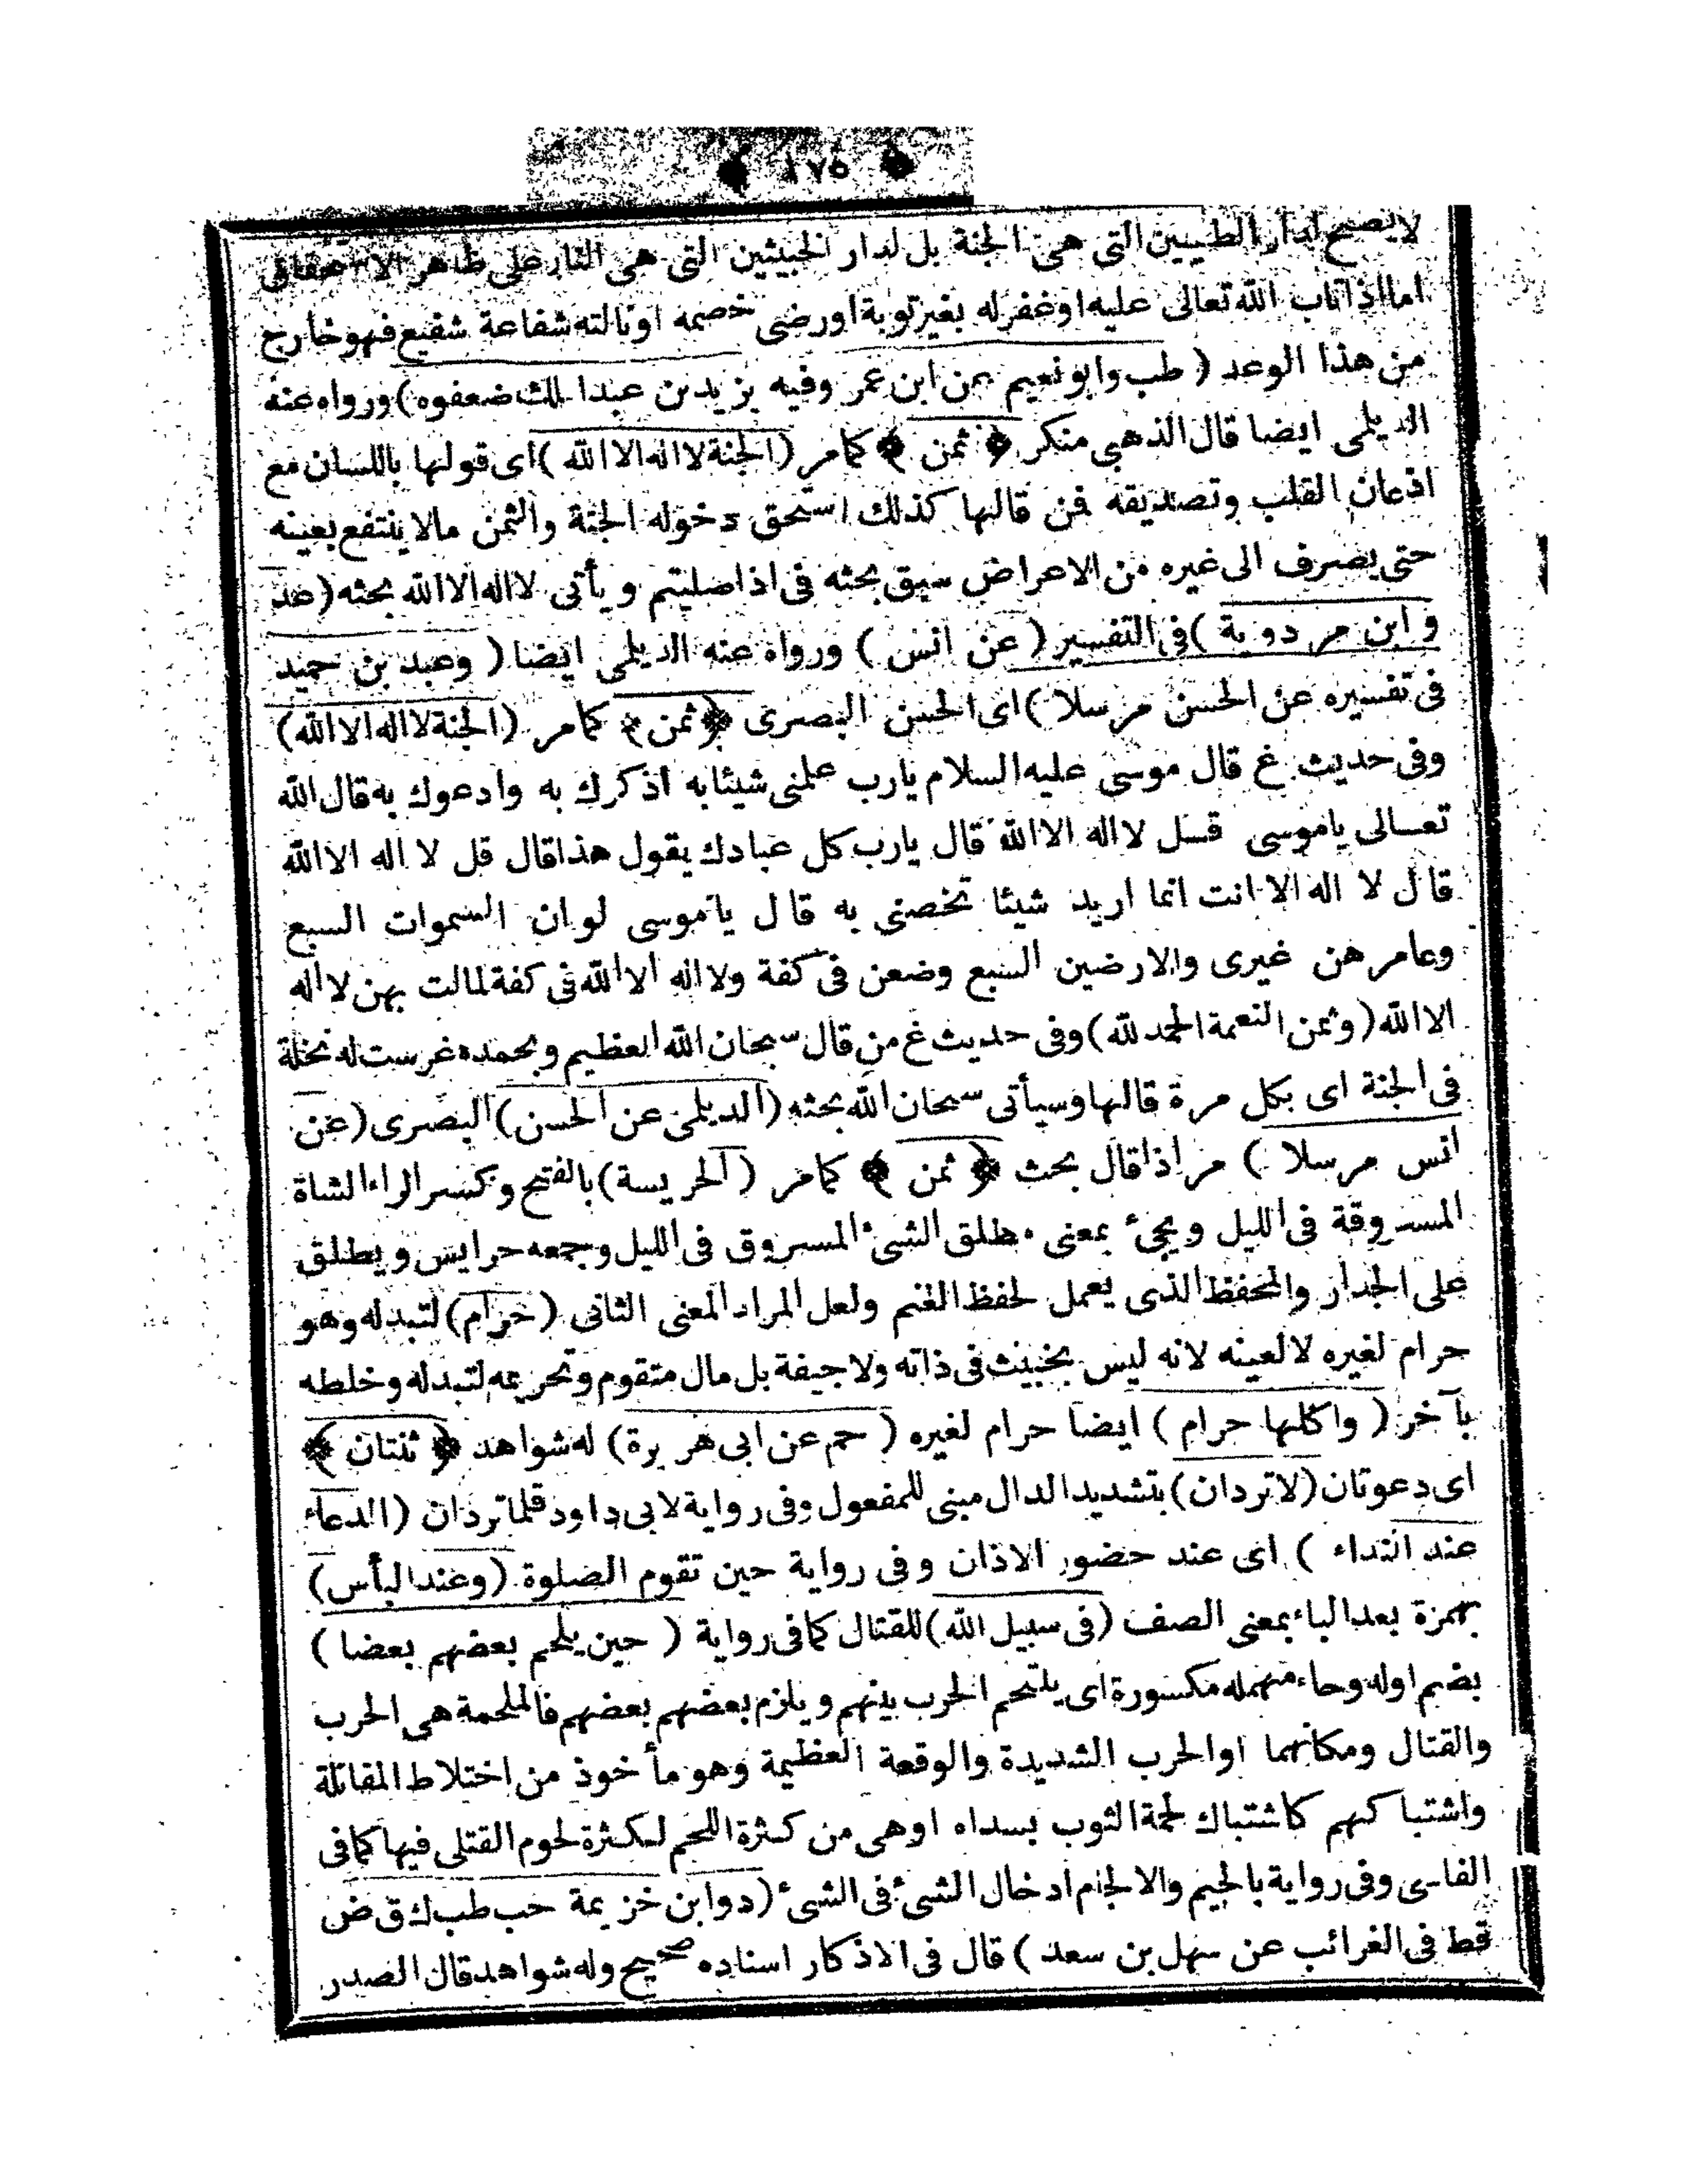 ﴿ ١٧٥ ﴾
لا يصح لدار الطيبين التى هى الجنة بل لدار الخبيثين التى هى النار على ظاهر الاستحقاق
اما اذا تاب الله تعالى عليه او غفر له بغير توبة او رضى خصمه او نالته شفاعة شفيع فهو خارج
من هذا الوعد ( طب وابو نعيم عن ابن عمر وفيه يزيد بن عبد الملك ضعفوه ) ورواه عنه
الديلمى ايضا قال الذهبى منكر ﴿ ثمن ﴾ كامر ( الجنة لا اله الا الله ) اى قولها باللسان مع
اذعان القلب وتصديقه فمن قالها كذلك استحق دخوله الجنة والثمن مالا ينتفع بعينه
حتى يصرف الى غيره من الاعراض سبق بحثه فى اذا صليتم ويأتى لا اله الا الله بحثه ( عد
وابن مردوية ) فى التفسير ( عن انس ) ورواه عنه الديلمى ايضا ( وعبد بن حميد
فى تفسيره عن الحسن مرسلا ) اى الحسن البصرى ﴿ ثمن ﴾ كامر ( الجنة لا اله الا الله )
وفى حديث غ قال موسى عليه السلام يارب علمنى شيئا به اذكرك به وادعوك به قال الله
تعالى ياموسى قل لا اله الا الله قال يارب كل عبادك يقول هذا قال قل لا اله الا الله
قال لا اله الا انت انما اريد شيئا تخصنى به قال ياموسى لو ان السموات السبع
وعامرهن غيرى والارضين السبع وضعن فى كفة ولا اله الا الله فى كفة لمالت بهن لا اله
الا الله ( وثمن النعمة الحمد لله ) وفى حديث غ من قال سبحان الله العظيم وبحمده غرست له نخلة
فى الجنة اى بكل مرة قالها وسيأتى سبحان الله بحثه ( الديلمى عن الحسن ) البصرى ( عن
انس مرسلا ) مر اذا قال بحث ﴿ ثمن ﴾ كامر ( الحريسة ) بالفتح وكسر الراء الشاة
المسروقة فى الليل ويجئ بمعنى مطلق الشئ المسروق فى الليل وجمعه حرايس ويطلق
على الجدار والمحفظ الذى يعمل لحفظ الغنم ولعل المراد المعنى الثانى ( حرام ) لتبدله وهو
حرام لغيره لا لعينه لانه ليس بخبيث فى ذاته ولا جيفة بل مال متقوم وتحريمه لتبدله وخلطه
بآخر ( واكلها حرام ) ايضا حرام لغيره ( حم عن ابى هريرة ) له شواهد ﴿ ثنتان ﴾
اى دعوتان ( لا تردان ) بتشديد الدال مبنى للمفعول وفى رواية لابى داود قلما تردان ( الدعاء
عند النداء ) اى عند حضور الاذان وفى رواية حين تقوم الصلوة ( وعند البأس )
بهمزة بعد الباء بمعنى الصف ( فى سبيل الله ) للقتال كما فى رواية ( حين يلحم بعضهم بعضا )
بضم اوله وحاء مهمله مكسورة اى يلتحم الحرب بينهم ويلزم بعضهم بعضهم فالملحمة هى الحرب
والقتال ومكانهما او الحرب الشديدة والوقعة العظيمة وهو مأخوذ من اختلاط المقاتلة
واشتباكهم كاشتباك لحمة الثوب بسداه اوهى من كثرة اللحم لكثرة لحوم القتلى فيها كما فى
الفاسى وفى رواية بالجيم والالجام ادخال الشئ فى الشئ ( د وابن خزيمة حب طب ك ق ض
قط فى الغرائب عن سهل بن سعد ) قال فى الاذكار اسناده صحيح وله شواهد قال الصدر